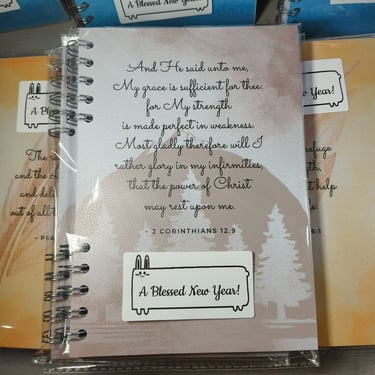 A Blessed New Year!
And He said unto me,
My grace is sufficient for thee:
for My strength
is made perfect in weakness.
Most gladly therefore will I
rather glory in my infirmities,
that the power of Christ
may rest upon me.
- 2 CORINTHIANS 12:9
A Blessed New Year!
The
and the
and deli
out of all t
- PSA
Year!
refuge
t help
6:1